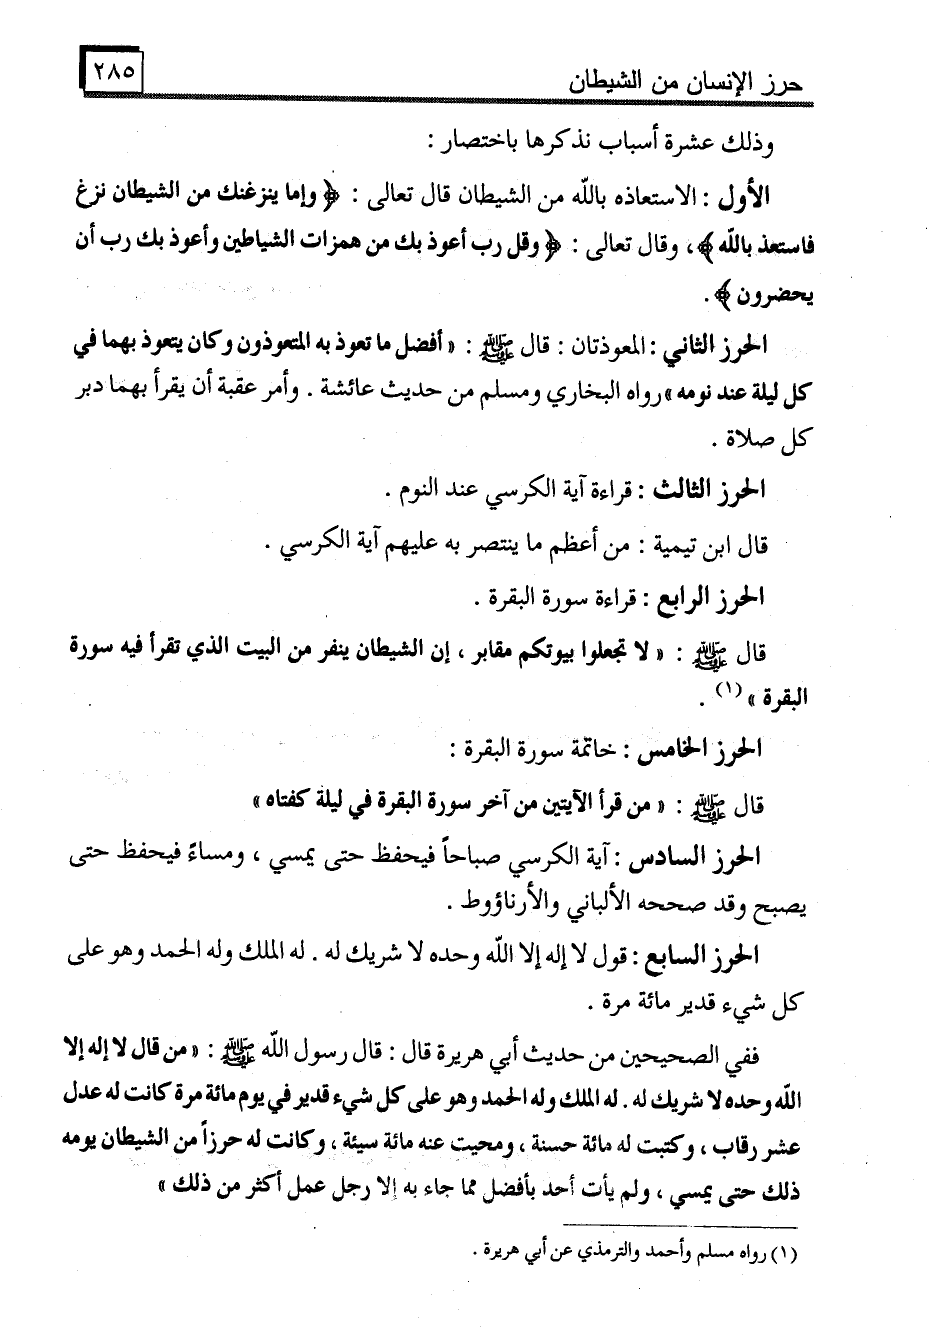 حرز الإنسان من الشيطان
٢٨٥
وذلك عشرة أسباب نذكرها باختصار :
الأول : الاستعاذه بالله من الشيطان قال تعالى : ﴿ وإما ينزغنك من الشيطان نزغ
فاستعذ بالله ﴾ ، وقال تعالى : ﴿ وقل رب أعوذ بك من همزات الشياطين وأعوذ بك رب أن
يحضرون ﴾ .
الحرز الثاني : المعوذتان : قال ﷺ : « أفضل ما تعوذ به المتعوذون وكان يتعوذ بهما في
كل ليلة عند نومه » رواه البخاري ومسلم من حديث عائشة . وأمر عقبة أن يقرأ بهما دبر
كل صلاة .
الحرز الثالث : قراءة آية الكرسي عند النوم .
قال ابن تيمية : من أعظم ما ينتصر به عليهم آية الكرسي .
الحرز الرابع : قراءة سورة البقرة .
قال ﷺ : « لا تجعلوا بيوتكم مقابر ، إن الشيطان ينفر من البيت الذي تقرأ فيه سورة
البقرة » (١) .
الحرز الخامس : خاتمة سورة البقرة :
قال ﷺ : « من قرأ الآيتين من آخر سورة البقرة في ليلة كفتاه »
الحرز السادس : آية الكرسي صباحاً فيحفظ حتى يمسي ، ومساءً فيحفظ حتى
يصبح وقد صححه الألباني والأرناؤوط .
الحرز السابع : قول لا إله إلا الله وحده لا شريك له . له الملك وله الحمد وهو على
كل شيء قدير مائة مرة .
ففي الصحيحين من حديث أبي هريرة قال : قال رسول الله ﷺ : « من قال لا إله إلا
الله وحده لا شريك له . له الملك وله الحمد وهو على كل شيء قدير في يوم مائة مرة كانت له عدل
عشر رقاب ، وكتبت له مائة حسنة ، ومحيت عنه مائة سيئة ، وكانت له حرزاً من الشيطان يومه
ذلك حتى يمسي ، ولم يأت أحد بأفضل مما جاء به إلا رجل عمل أكثر من ذلك »
(١) رواه مسلم وأحمد والترمذي عن أبي هريرة .